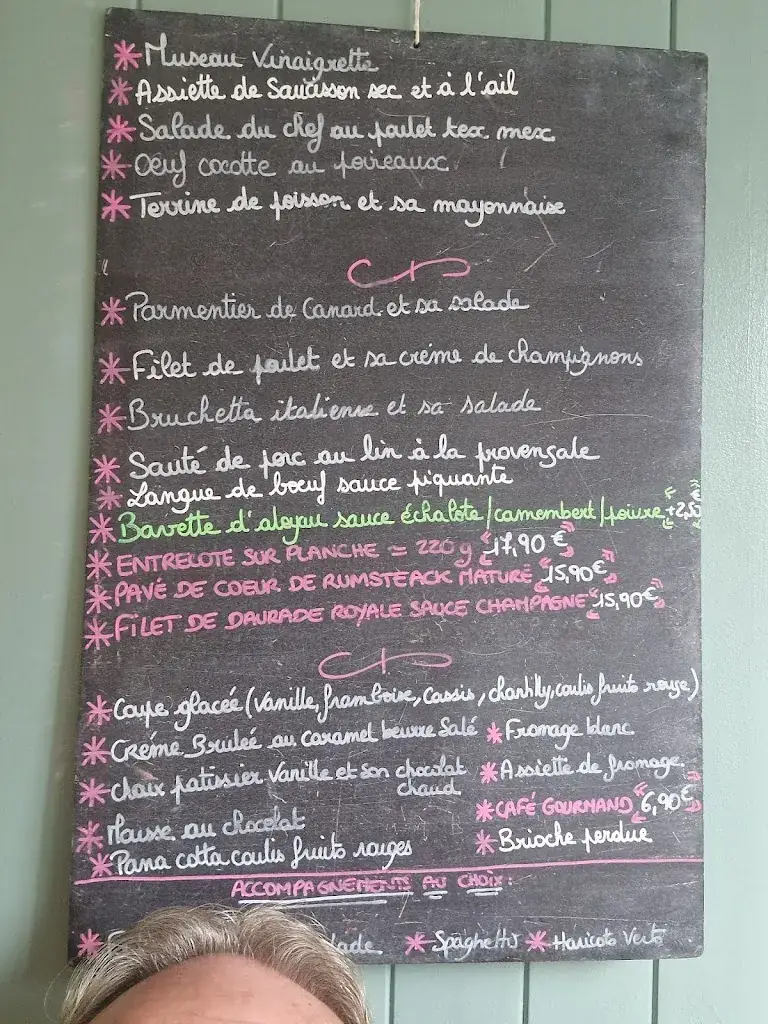 * Museau Vinaigrette
* Assiette de Saucisson sec et à l'ail
* Salade du chef au poulet tex mex
* Oeuf cocotte au poireaux
* Terrine de poisson et sa mayonnaise
* Parmentier de Canard et sa salade
* Filet de poulet et sa créme de champignons
* Bruchetta italienne et sa salade
* Sauté de porc au lin à la provençale
* Langue de boeuf sauce piquante
* Bavette d'aloyau sauce échalote/camembert/poivre +2,50
* ENTRECOTE SUR PLANCHE ≃ 220 g 17,90 €
* PAVÉ DE COEUR DE RUMSTEACK MATURÉ 15,90€
* FILET DE DAURADE ROYALE SAUCE CHAMPAGNE 15,90€
* Coupe glacée (Vanille, framboise, Cassis, chantilly, coulis fruits rouge)
* Créme Bruleé au caramel beurre Salé * Fromage blanc
* choux patissier Vanille et son chocolat chaud * Assiette de fromage
* Mousse au chocolat * CAFÉ GOURMAND 6,90€
* Pana cotta coulis fruits rouges * Brioche perdue
ACCOMPAGNEMENTS AU CHOIX :
* Spaghetto * Haricots Verts